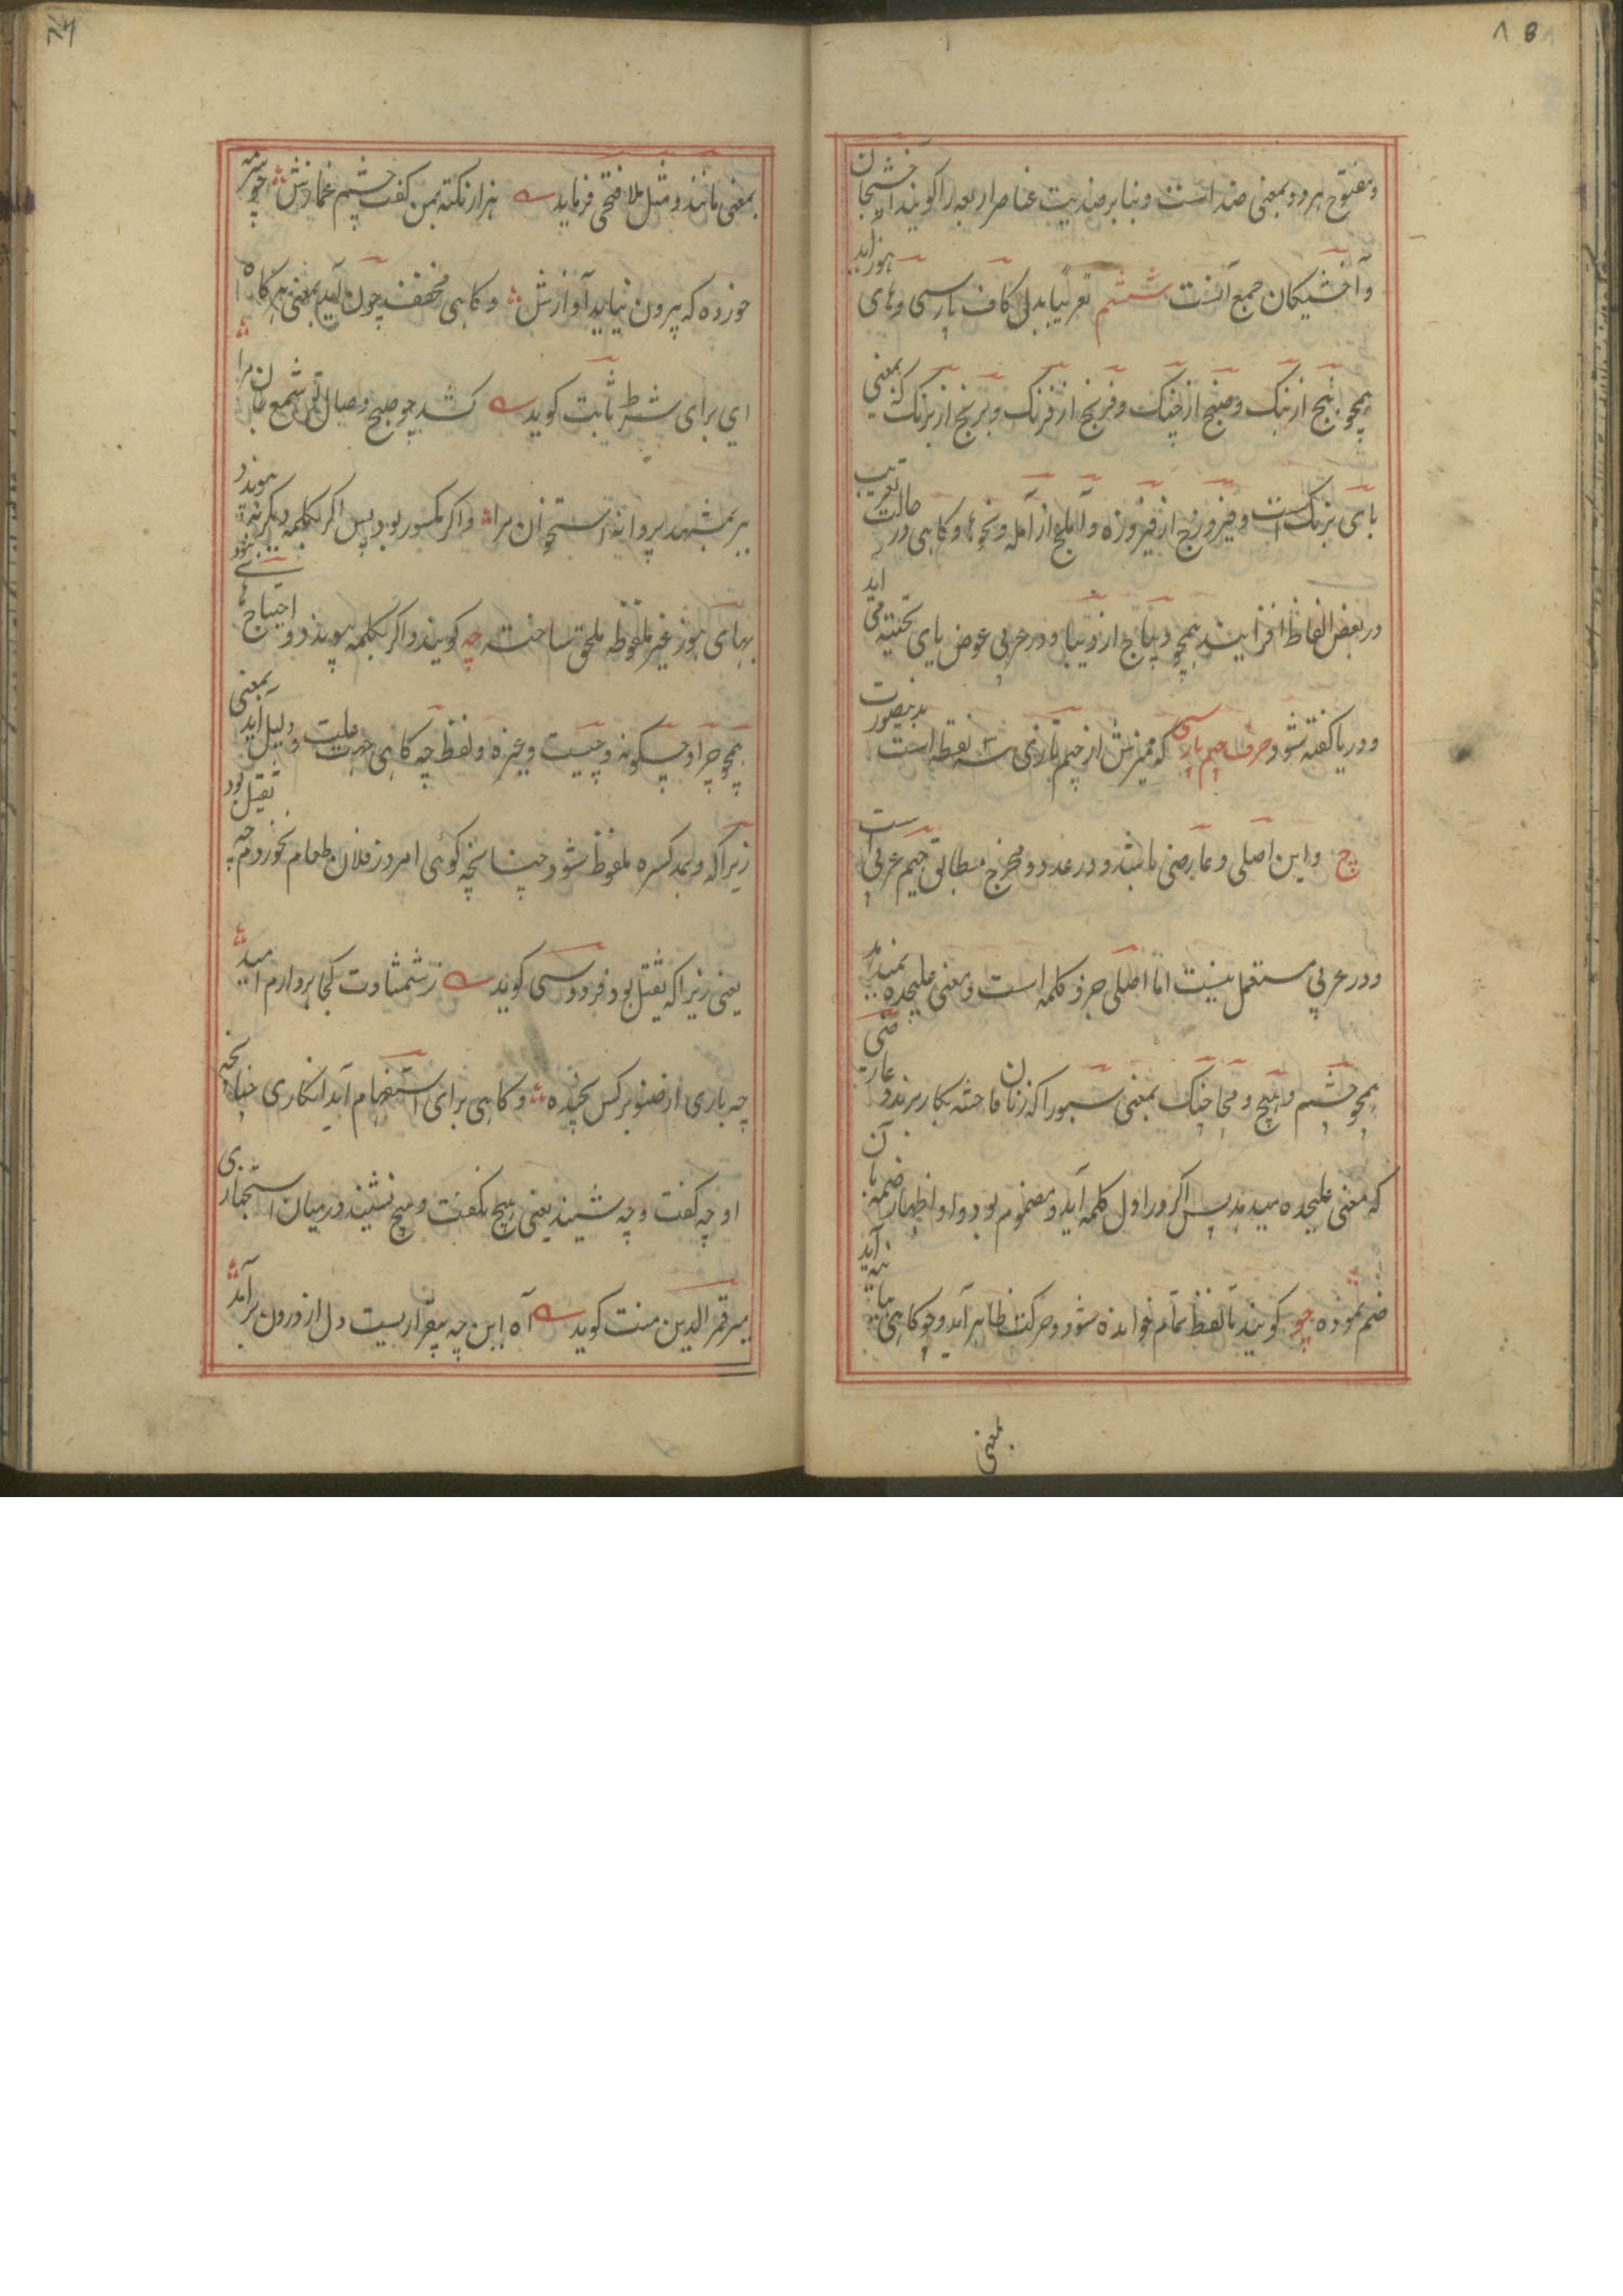 ۱۸
ومفتوح هر دو بمعنی ضد است و بنا بر ضدیت عناصر اربعه را کویند اخشیجان
و آخشیکان جمع آنست ششم تعریبا بدل کاف پارسی و های هوز اید
همچو بنج از بنک و صنج از چنک و فرنج از فرنک و برنج از برنک که بمعنی
بای بزنک است و فیروزج از فیروزه و آملج از آمله و نحوها و کاهی در حالت تعریب
در بعض الفاظ افزایند همچو دیباج از دیبا و در عربی عوض یای تحتیه می اید
و در یا کفته شود حرف جیم پارسی که ممیزش از جیم تازی سه نقطه است بدینصورت
چ و این اصلی و عارضی باشد و در عدد و مخرج مطابق جیم عربی است
و در عربی مستعمل نیست اما اصلی جزو کلمه است و معنی علیحده نمیدهد
همچو چشم و هیچ و مچاچنک بمعنی سبورا که زنان فاحشه بکار برند و عارضی آن
که معنی علیحده میدهد پس اکر در اول کلمه آید و مضموم بود و او اظهار ضمه با
ضم نموده چو کویند تا لفظ تمام خوانده شود و حرکت ظاهر آید و چو کاهی
بمعنی
بمعنی مانند و مثل ملا فتحی فرماید هزار نکته بمن کفت چشم غمازش چو سرمه
خورده که بیرون نیاید آوازش و کاهی مخفف چون آید بمعنی هرکاه
ای برای شرط ثابت کوید کشد چو صبح وصال تو شمع جان مرا
برد بمشهد پروانه استخوان مرا و اکر مکسور بود پس اکر بکلمه دیکر نه پیوندد
بهای هوز غیر ملفوظه ملحق ساخته چه کویند و اکر بکلمه پیوندد احتیاج نشود
همچو چرا و چکونه و چیست و غیره و لفظ چه کاهی جهت علیت و دلیل آید بمعنی
زیرا که و بمد کسره ملفوظ شود چنانچه کوئی امروز فلان طعام نخوردم چه ثقیل بود
یعنی زیرا که ثقیل بود فردوسی کوید ز شمشادت کجا بر دارم امید
چه باری از صنوبر کس نچیده و کاهی برای استفهام آید انکاری چنانچه
او چه کفت و چه شنید یعنی هیچ نکفت و هیچ نشنید و درمیان استخباری
میر قمر الدین منت کوید آه این چه بیقراریست دل از درون برآمد